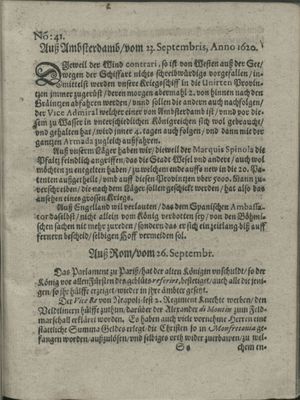 No: 41.
Auß Ambsterdamb/vom 23. Septembris, Anno 1620.
Dieweil der Wind contrari, so ist von Westen auß der See/
wegen der Schiffart nichts schreibwürdigs vorgefallen/in-
mittelst werden unsere Kriegsschiff in die Unirten Provin-
tzen immer zugerüst/deren morgen abermahl 2. von hinnen nach den
Gräintzen abfahren werden/und sollen die andern auch nachfolgen/
der Vice Admiral welcher einer von Ambsterdam ist/und vor die-
sem zu Wasser in unterschiedlichen Königreichen sich wol gebraucht/
und gehalten hat/wird inner 4. tagen auch folgen/und dann mit der
gantzen Armada zugleich außfahren.
Auß unserm Läger haben wir/dieweil der Marquis Spinola die
Pfaltz feindlich angriffen/das die Stadt Wesel und andere/auch wol
möchten zu entgelten haben/zu welchem ende auffs new in die 20. Pa-
tenten außgetheilt/und auff diesen Provintzen uber 5000. Mann zu-
verschreiben/die nach dem Läger sollen geschickt werden/hat also das
ansehen eines grossen Kriegs.
Auß Engelland wil verlauten/das dem Spanischen Ambassa-
tor daselbst/nicht allein vom König verbotten sey/von den Böhmi-
schen sachen nit mehr zureden/sondern das er sich eine zeitlang biß auff
fernern bescheid/selbigen Hoff vermeiden sol.
Auß Rom/vom 26. Septembr.
Das Parlament zu Pariß/hat der alten Königin unschuldt/so der
König vor allen Fürsten des geblüts referirt, bestetiget/auch alle die jeni-
gen/so ihr hülffe erzeiget/wieder in ihre ämbter gesetzt.
Der Vice Re von Neapolis lest 2. Regiment Knechte werben/den
Veldtlinern hülffe zuthun/darüber der Alexander de Montiv zum Feld-
marschall erklärt worden. Es haben auch viele vornehme Herren eine
stattliche Summa Geldes erlegt die Christen so in Monfretania ge-
fangen worden/außzulösen/und selbiges orth wider zuerbawen/zu wel-
Ss chem en-